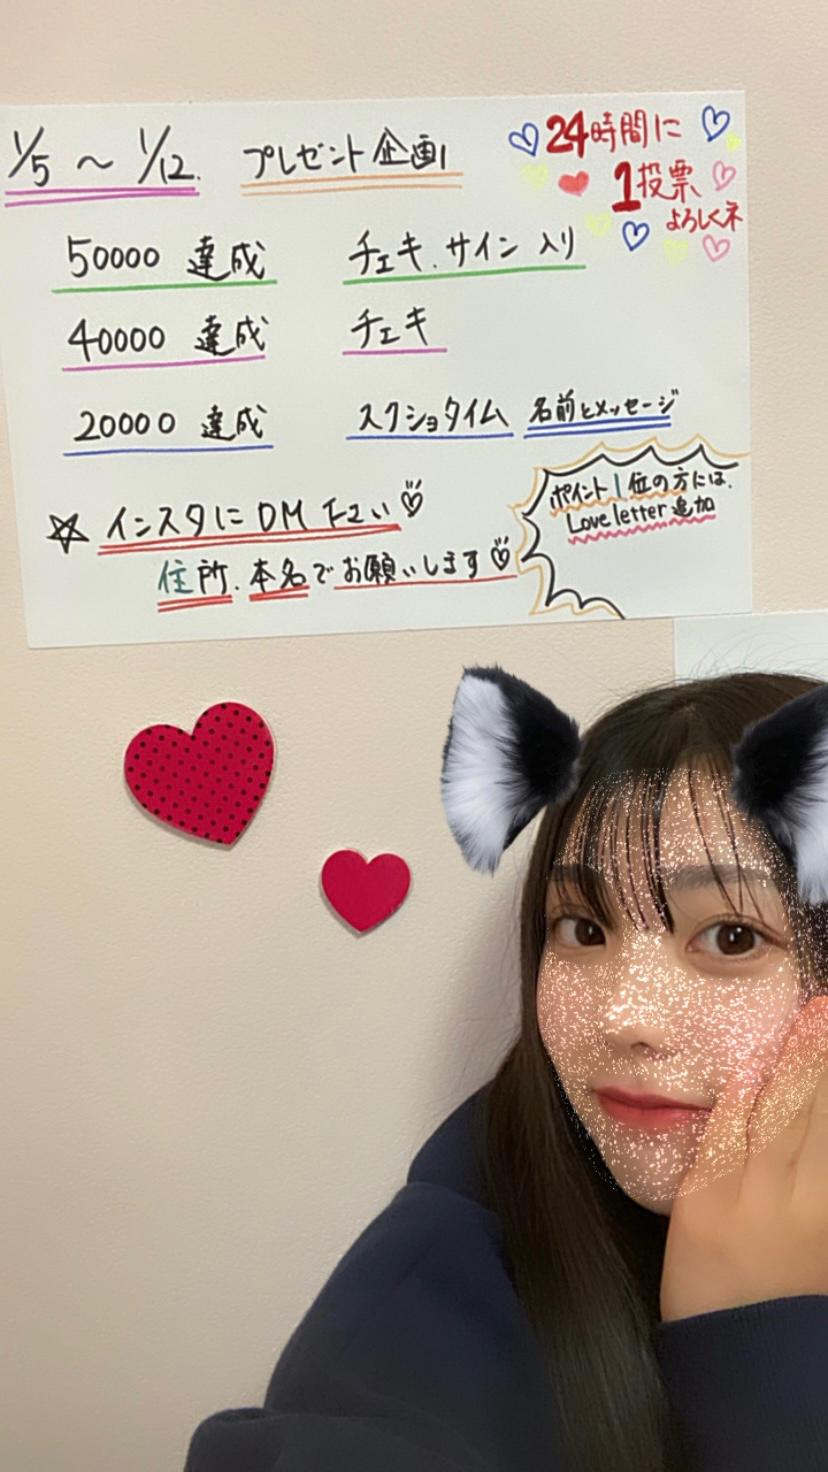 1/5 ~ 1/12. プレゼント企画!
24時間に
1投票
よろしくネ
50000 達成 チェキ.サイン入り
40000 達成 チェキ
20000 達成 スクショタイム 名前とメッセージ
☆ インスタにDM下さい♡
住所.本名でお願いします♡
ポイント1位の方には.
Love letter追加